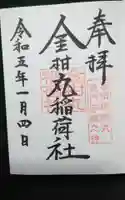 奉拝
金柑丸稲荷社
令和五年一月四日